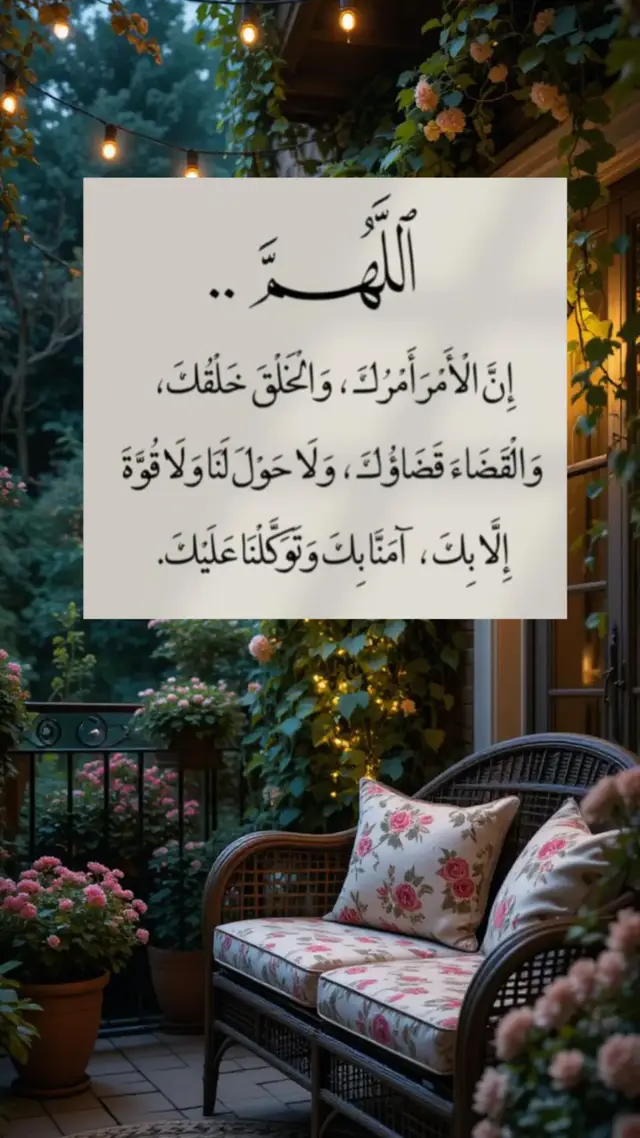 ٱللَّهُمَّ ..
إِنَّ الْأَمْرَ أَمْرُكَ، وَالْخَلْقَ خَلْقُكَ،
وَالْقَضَاءَ قَضَاؤُكَ، وَلَا حَوْلَ لَنَا وَلَا قُوَّةَ
إِلَّا بِكَ، آمَنَّا بِكَ وَتَوَكَّلْنَا عَلَيْكَ.